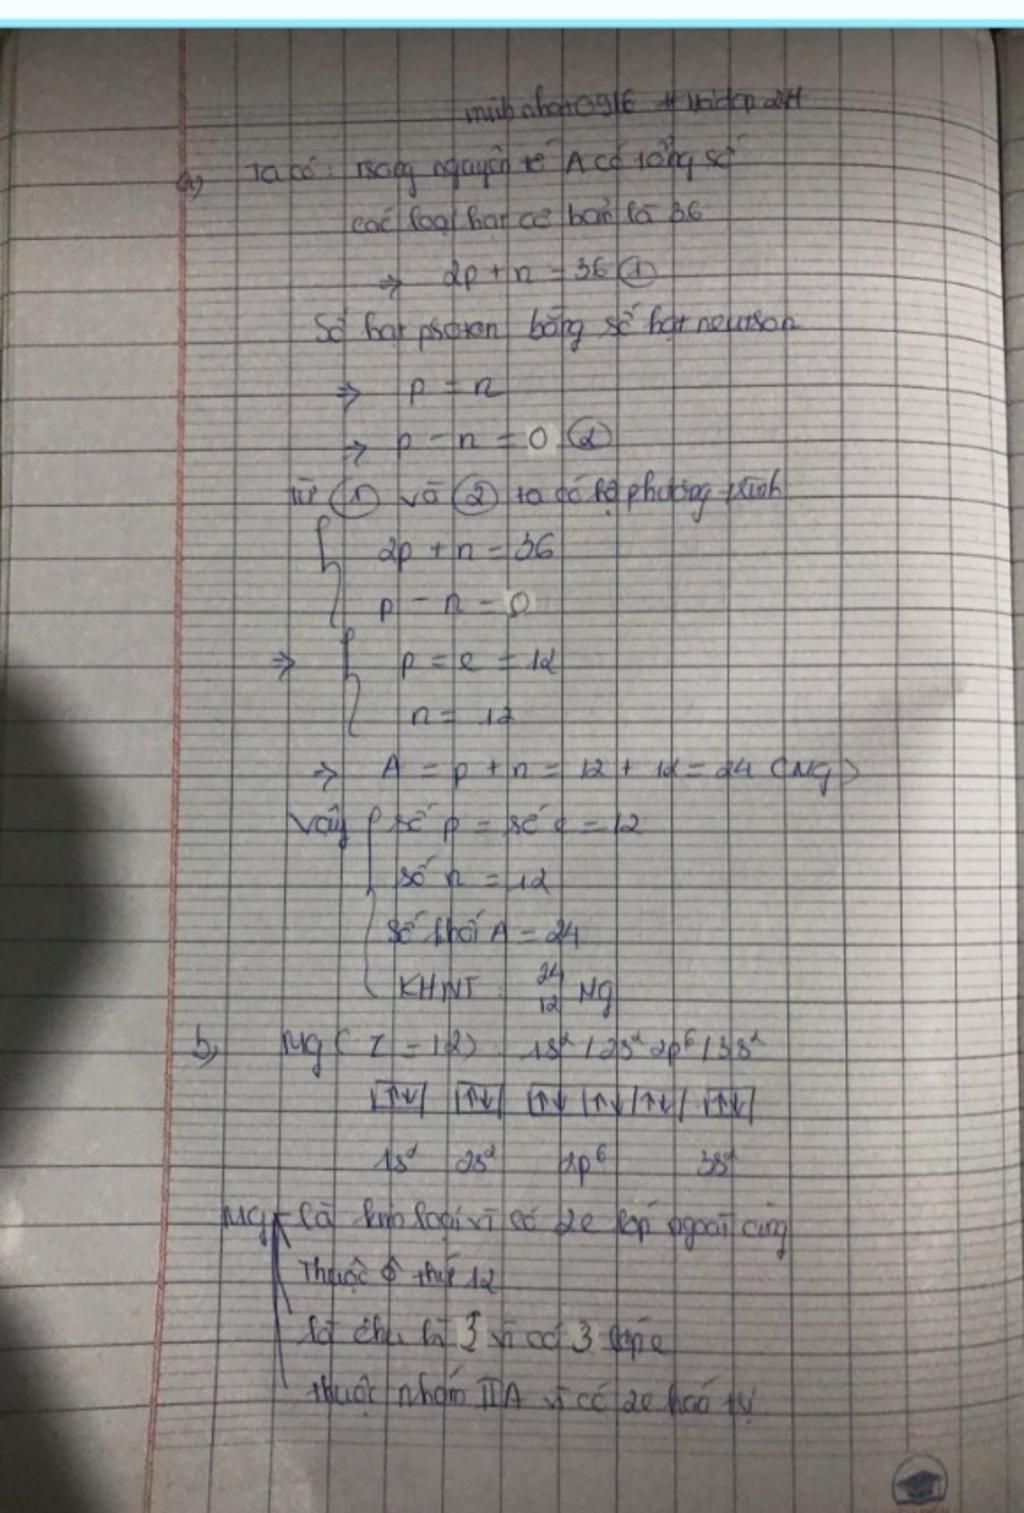 a) Ta có: Trong nguyên tố A có tổng số
các loại hạt cơ bản là 36
⇒ 2p + n = 36 ①
Số hạt proton bằng số hạt neutron
⇒ p = n
⇒ p - n = 0 ②
Từ ① và ② ta có hệ phương trình
{ 2p + n = 36
p - n = 0
⇒ { p = e = 12
n = 12
⇒ A = p + n = 12 + 12 = 24 (Mg)
Vậy { số p = số e = 12
số n = 12
số khối A = 24
KHNT 24 12 Mg
b, Mg (Z = 12) 1s² / 2s² 2p⁶ / 3s²
↑↓ ↑↓ ↑↓ ↑↓ ↑↓ ↑↓
1s² 2s² 2p⁶ 3s²
Mg là kim loại vì có 2e lớp ngoài cùng
Thuộc ô thứ 12
3 vì có 3 lớp e
Thuộc nhóm IIA vì có 2e hoá trị